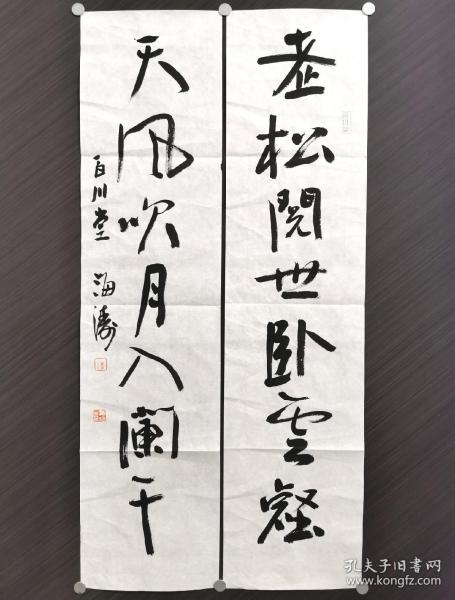 老松閱世臥雲壑
天風吹月入闌干
百川堂 海濤
孔夫子旧书网
www.kongfz.com